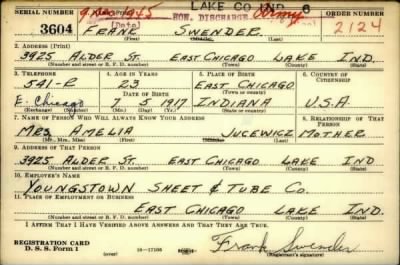 LAKE CO IND 6
SERIAL NUMBER 9 Dec 1945 HON. DISCHARGE Army ORDER NUMBER
3604 FRANK SWENDER 2124
[Date]
2. ADDRESS (Print)
3925 ALDER ST. EAST CHICAGO LAKE IND.
(Number and street or R. F. D. number) (Town) (County) (State)
3. TELEPHONE 4. AGE IN YEARS 5. PLACE OF BIRTH 6. COUNTRY OF CITIZENSHIP
541-R 23 EAST CHICAGO
DATE OF BIRTH
E. Chicago 7 5 1917 INDIANA U.S.A.
(Exchange) (Number) (Mo.) (Day) (Yr.) (State or country)
7. NAME OF PERSON WHO WILL ALWAYS KNOW YOUR ADDRESS 8. RELATIONSHIP OF THAT PERSON
MRS AMELIA JUCEWICZ MOTHER
(Mr., Mrs., Miss) (First) (Middle) (Last)
9. ADDRESS OF THAT PERSON
3925 ALDER ST. EAST CHICAGO LAKE IND
(Number and street or R. F. D. number) (Town) (County) (State)
10. EMPLOYER'S NAME
YOUNGSTOWN SHEET & TUBE CO.
11. PLACE OF EMPLOYMENT OR BUSINESS
EAST CHICAGO LAKE IND.
(Number and street or R. F. D. number) (Town) (County) (State)
I AFFIRM THAT I HAVE VERIFIED ABOVE ANSWERS AND THAT THEY ARE TRUE.
REGISTRATION CARD
D. S. S. Form 1 16-17105 Frank Swender
(Registrant's signature)